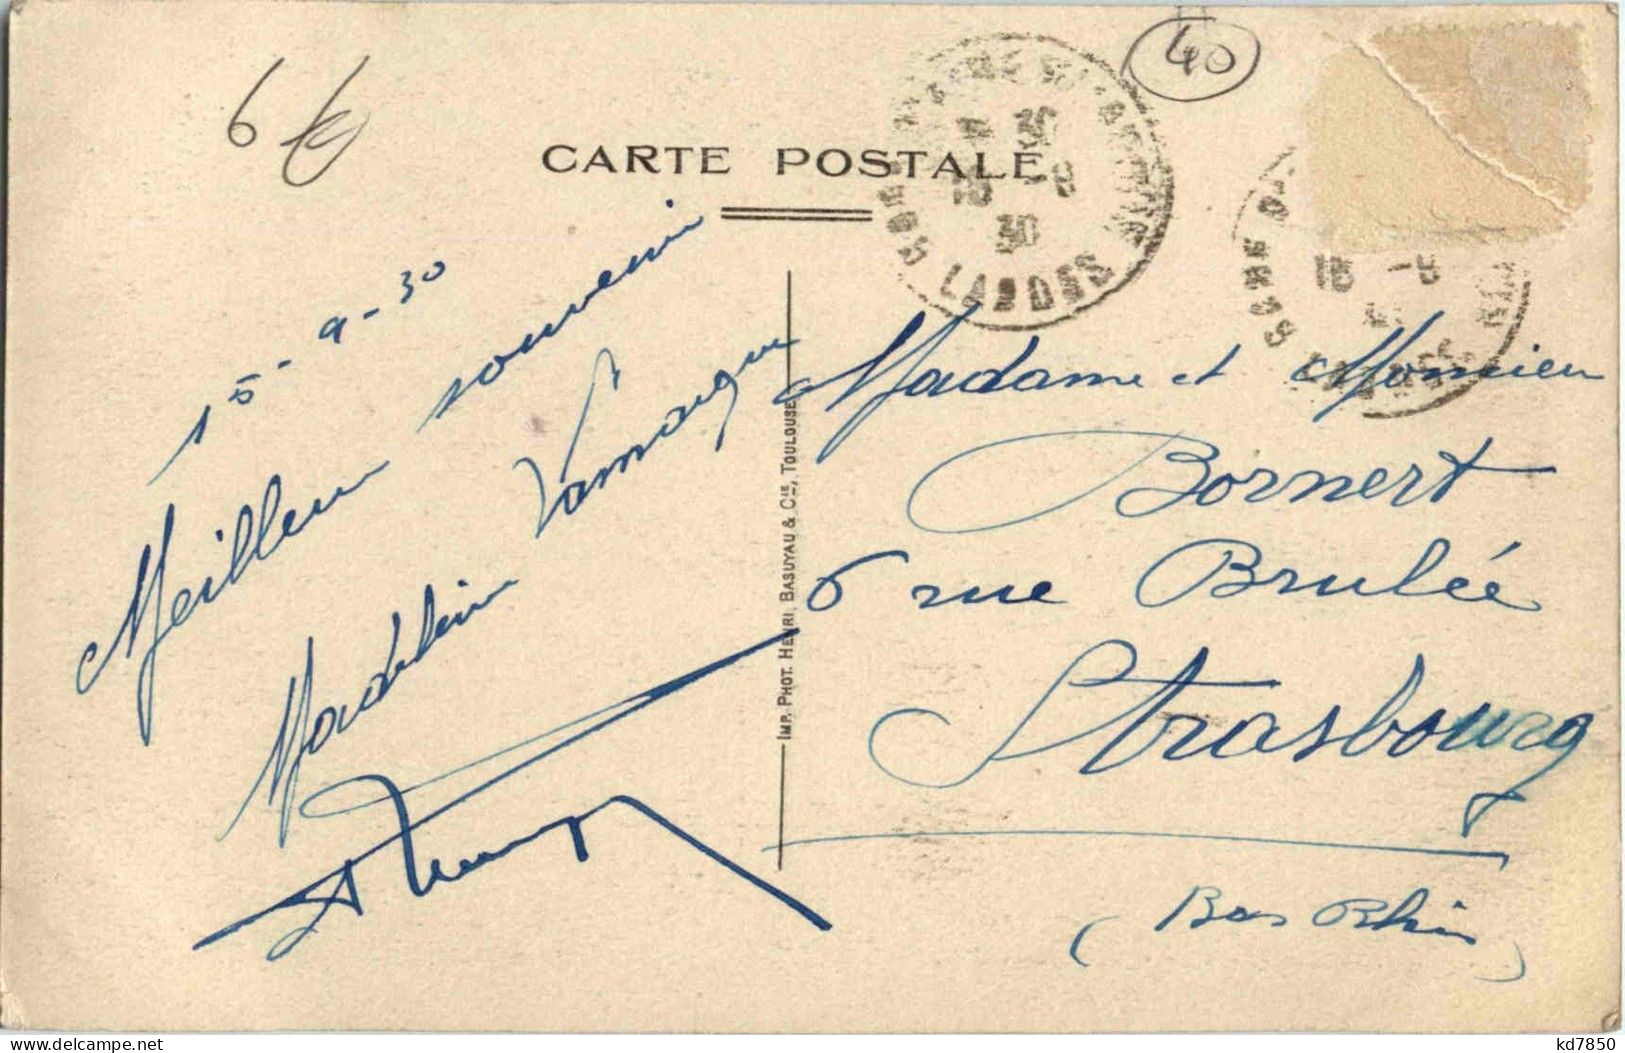 6 €
40
CARTE POSTALE
LANDES
15-9-30
Meilleur souvenir
Madeleine
IMP. PHOT. HENRI, BASUYAU & CIE, TOULOUSE
Madame et Monsieur
Bornert
6 rue Brulée
Strasbourg
(Bas Rhin)
kd7850